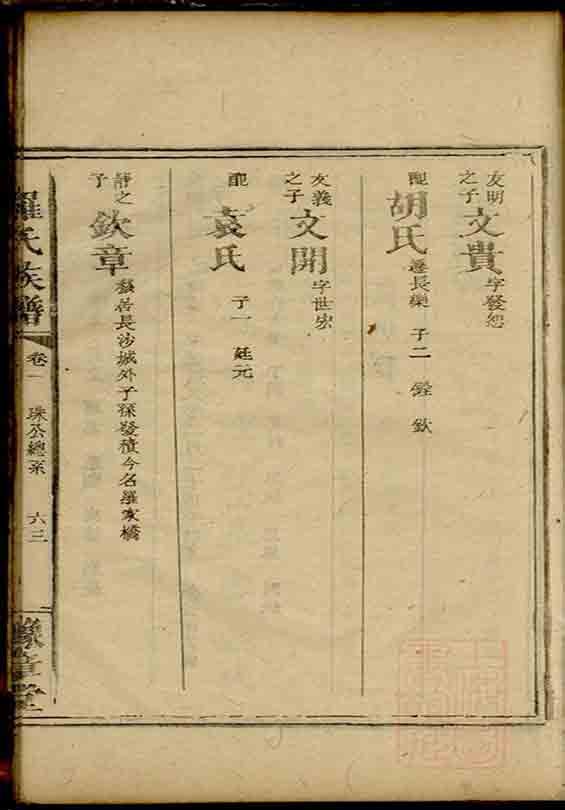 友明之子 文貴 字發恕
配 胡氏 遷長樂 子二 銓 欽
友義之子 文開 字世宏
配 袁氏 子一 廷元
靜之子 欽章 移居長沙城外子孫發積今名羅家橋
羅氏族譜 卷一 珠公總系 六三 豫章堂